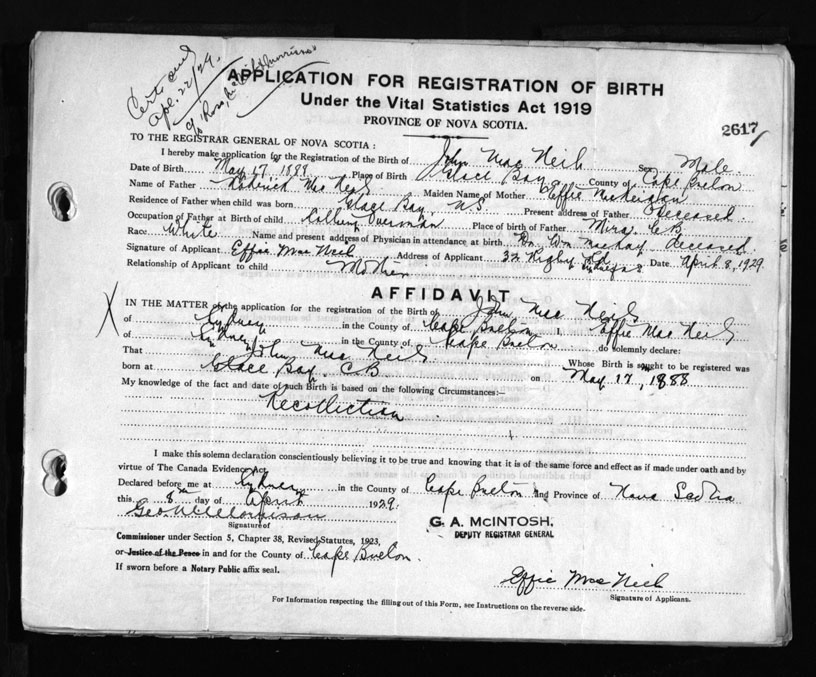 Apl. 22/29.
APPLICATION FOR REGISTRATION OF BIRTH
Under the Vital Statistics Act 1919
PROVINCE OF NOVA SCOTIA.
2617
TO THE REGISTRAR GENERAL OF NOVA SCOTIA:
I hereby make application for the Registration of the Birth of John Mac Neil Sex Male
Date of Birth May 17 1888 Place of Birth Glace Bay County of Cape Breton
Name of Father Roderick Mac Neil Maiden Name of Mother Effie
Residence of Father when child was born Glace Bay N.S. Present address of Father Deceased
Occupation of Father at Birth of child Colliery Overman Place of birth of Father Mira CB
Race White Name and present address of Physician in attendance at birth Dr. Wm MacKay Deceased
Signature of Applicant Effie Mac Neil Address of Applicant 32 Rigby Rd Date April 8, 1929
Relationship of Applicant to child Mother
AFFIDAVIT
IN THE MATTER of the application for the registration of the Birth of John Mac Neil
of Sydney in the County of Cape Breton I, Effie Mac Neil
of Sydney in the County of Cape Breton do solemnly declare:
That John Mac Neil Whose Birth is sought to be registered was
born at Glace Bay CB on May 17, 1888
My knowledge of the fact and date of such Birth is based on the following Circumstances:—
Recollection
I make this solemn declaration conscientiously believing it to be true and knowing that it is of the same force and effect as if made under oath and by
virtue of The Canada Evidence Act.
Declared before me at Sydney in the County of Cape Breton and Province of Nova Scotia
this 8th day of April 1929.
Signature of
G. A. McINTOSH,
DEPUTY REGISTRAR GENERAL
Commissioner under Section 5, Chapter 38, Revised Statutes, 1923,
or Justice of the Peace in and for the County of Cape Breton.
If sworn before a Notary Public affix seal.
Effie Mac Neil
Signature of Applicant.
For Information respecting the filling out of this Form, see Instructions on the reverse side.